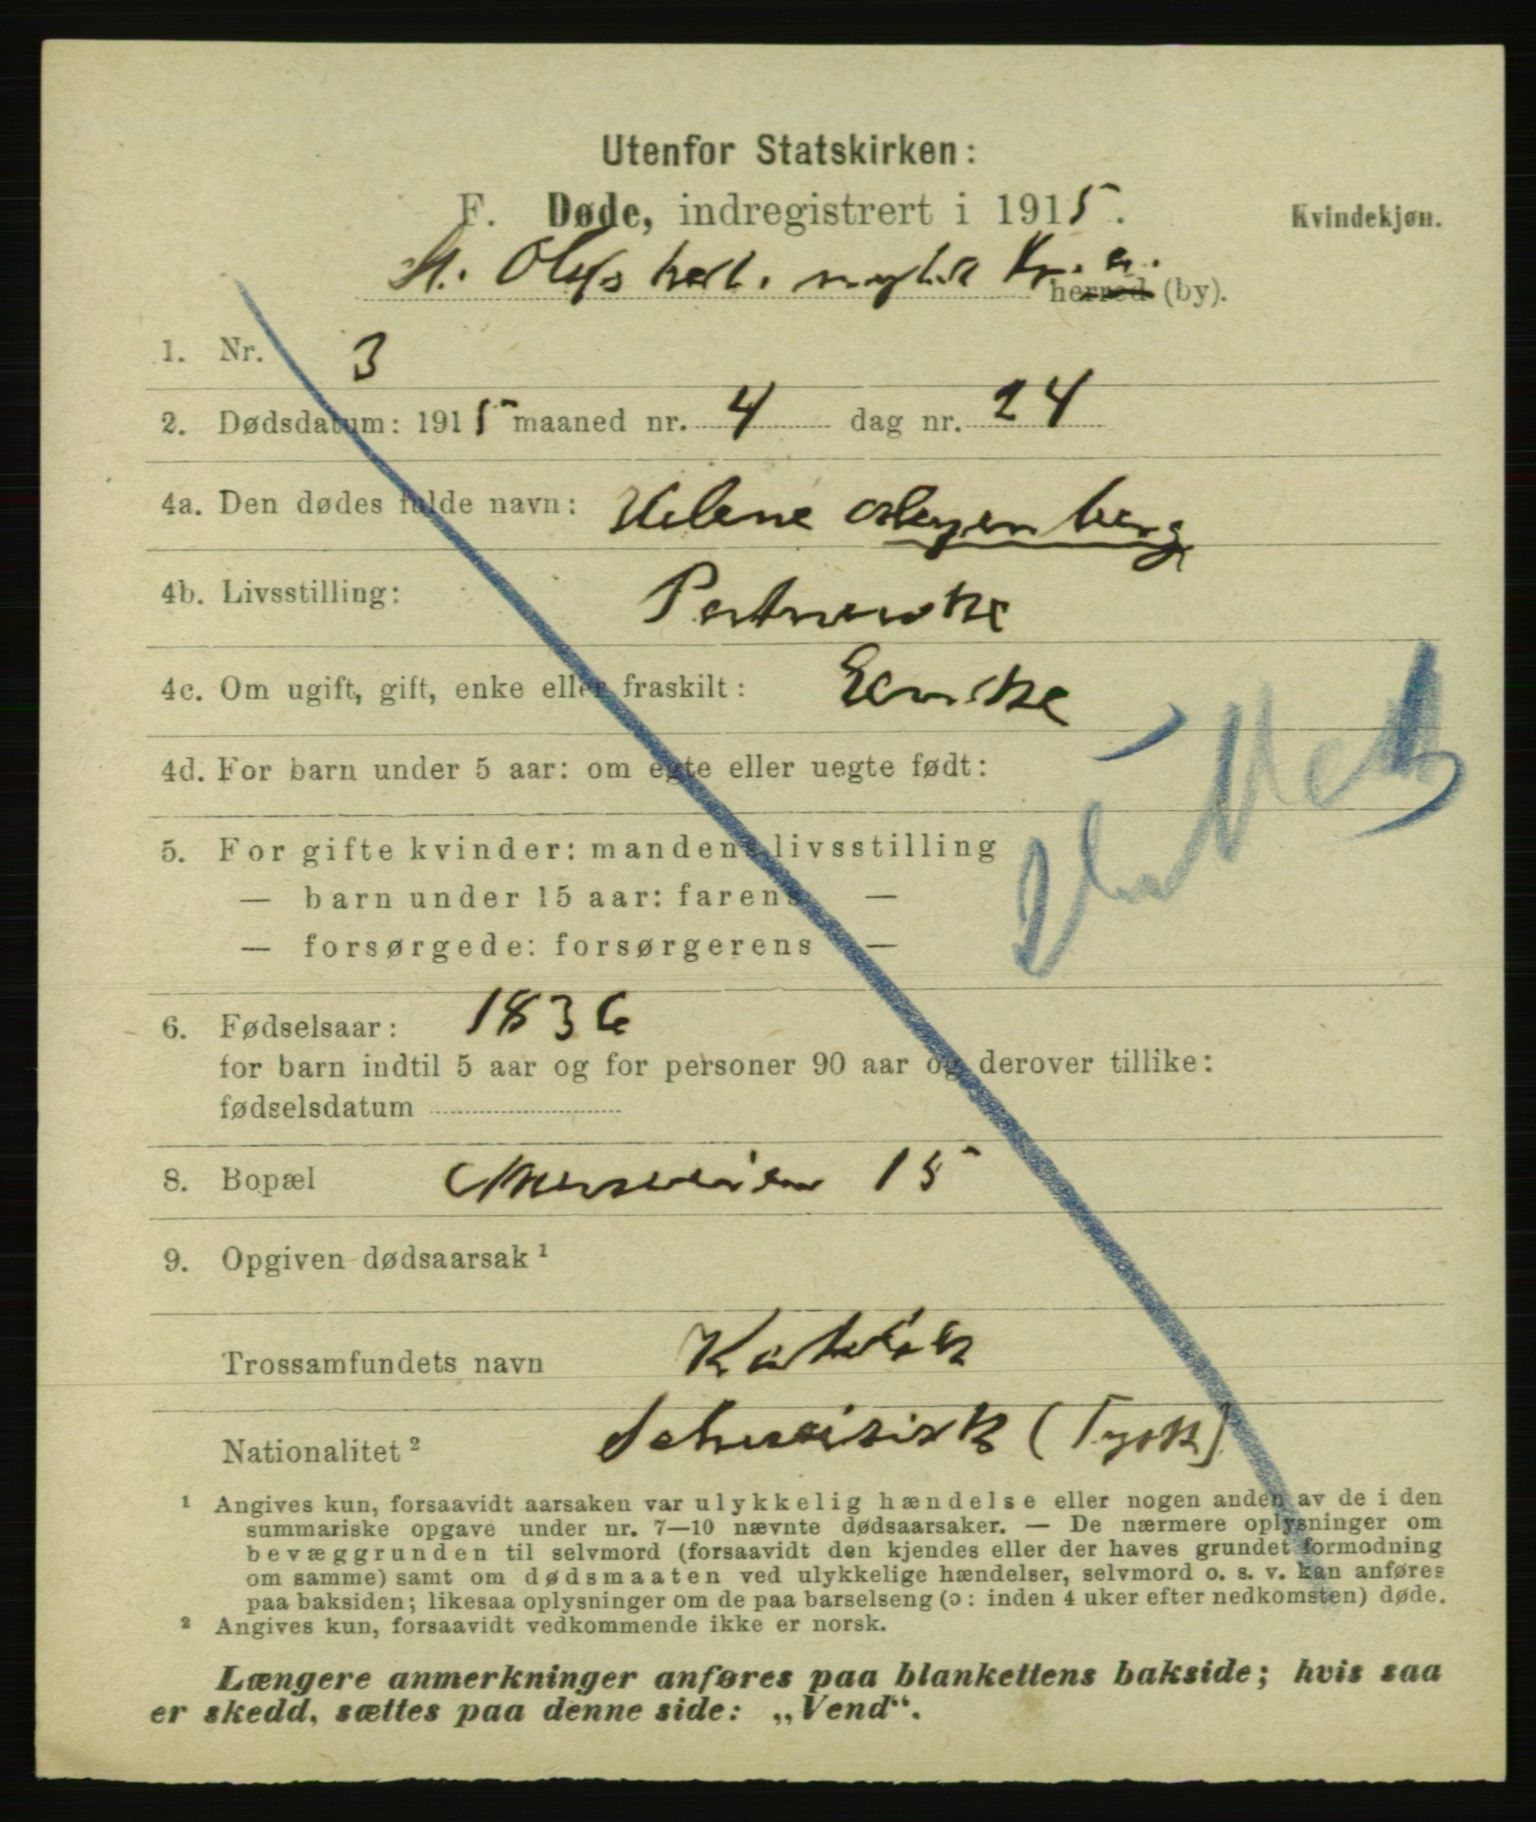 Utenfor Statskirken:
F. Døde, indregistrert i 1915. Kvindekjøn.
St. Olafs kath. Kr.a. herred (by).
1. Nr. 3
2. Dødsdatum: 1915 maaned nr. 4 dag nr. 24
4a. Den dødes fulde navn: Helene
4b. Livsstilling:
4c. Om ugift, gift, enke eller fraskilt: Enke
4d. For barn under 5 aar: om egte eller uegte født:
5. For gifte kvinder: mandens livsstilling
— barn under 15 aar: farens —
— forsørgede: forsørgerens —
6. Fødselsaar: 1836
for barn indtil 5 aar og for personer 90 aar og derover tillike:
fødselsdatum
8. Bopæl 15
9. Opgiven dødsaarsak ¹
Trossamfundets navn Katolsk
Nationalitet ² Schweizisk (Tysk)
¹ Angives kun, forsaavidt aarsaken var ulykkelig hændelse eller nogen anden av de i den
summariske opgave under nr. 7—10 nævnte dødsaarsaker. — De nærmere oplysninger om
bevæggrunden til selvmord (forsaavidt den kjendes eller der haves grundet formodning
om samme) samt om dødsmaaten ved ulykkelige hændelser, selvmord o. s. v. kan anføres
paa baksiden; likesaa oplysninger om de paa barselseng (ɔ: inden 4 uker efter nedkomsten) døde.
² Angives kun, forsaavidt vedkommende ikke er norsk.
Længere anmerkninger anføres paa blankettens bakside; hvis saa
er skedd, sættes paa denne side: „Vend“.